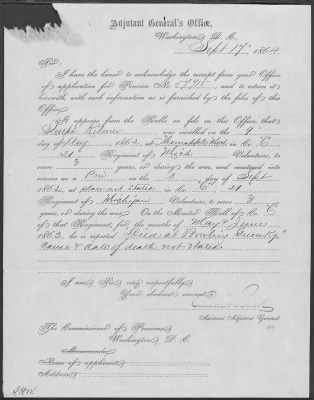 Adjutant General's Office,
Washington, D. C.
Sept 17" 1864.
Sir:
I have the honor to acknowledge the receipt from your Office
of application for Pension No. and to return it
herewith, with such information as is furnished by the files of this
Office.
It appears from the Rolls on file in this Office, that
Joseph was enrolled on the 9"
day of Aug 1862, at in Co. "C"
21st Regiment of Mich Volunteers, to
serve 3 years, or during the war, and mustered into
service as a Pvt on the day of Sept
1862, at place not stated, in Co. "C" 21
Regiment of Michigan Volunteers, to serve 3
years, or during the war. On the Muster Roll of Co. C
of that Regiment, for the months of May & June
1863, he is reported "Died at Bowling Green Ky"
Cause & date of death not stated.
I am, Sir, very respectfully,
Your obedient servant,
Assistant Adjutant General
The Commissioner of Pensions,
Washington, D. C.
Memoranda:
Name of applicant,
Address,